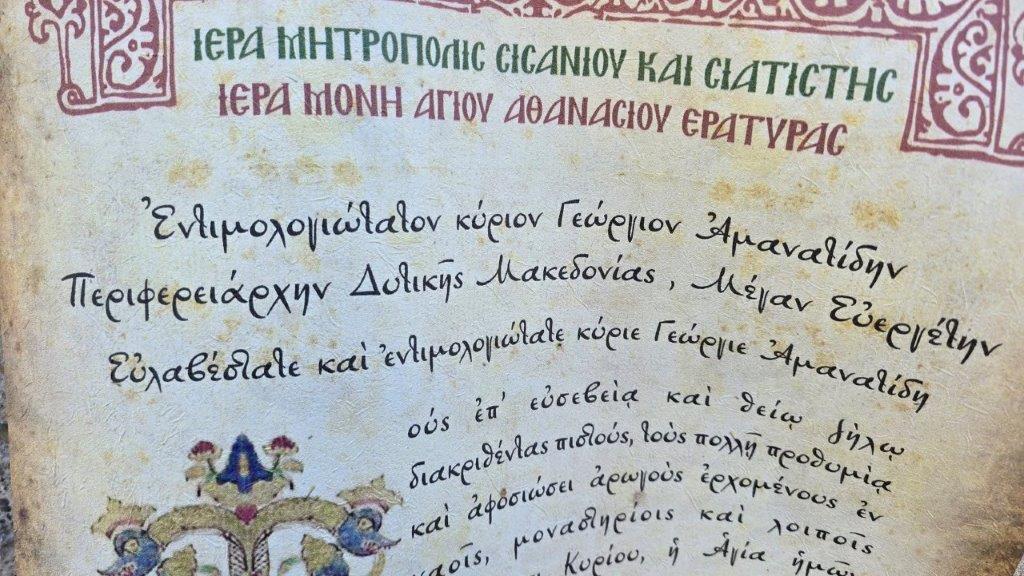 ΙΕΡΑ ΜΗΤΡΟΠΟΛΙΣ ΣΙΣΑΝΙΟΥ ΚΑΙ ΣΙΑΤΙΣΤΗΣ
ΙΕΡΑ ΜΟΝΗ ΑΓΙΟΥ ΑΘΑΝΑΣΙΟΥ ΕΡΑΤΥΡΑΣ
Ἐντιμολογιώτατον κύριον Γεώργιον Ἀμανατίδην
Περιφερειάρχην Δυτικῆς Μακεδονίας, Μέγαν Εὐεργέτην
Εὐλαβέστατε καὶ ἐντιμολογιώτατε κύριε Γεώργιε Ἀμανατίδη
οὑς ἐπ' εὐσεβείᾳ καὶ θείῳ ζήλῳ
διακριθέντας πιστούς, τοὺς πολλῇ προθυμίᾳ
καὶ ἀφοσιώσει ἀρωγοὺς ἐρχομένους ἐν
ναοῖς, μοναστηρίοις καὶ λοιποῖς
Κυρίου, ἡ Ἁγία ἡμῶν